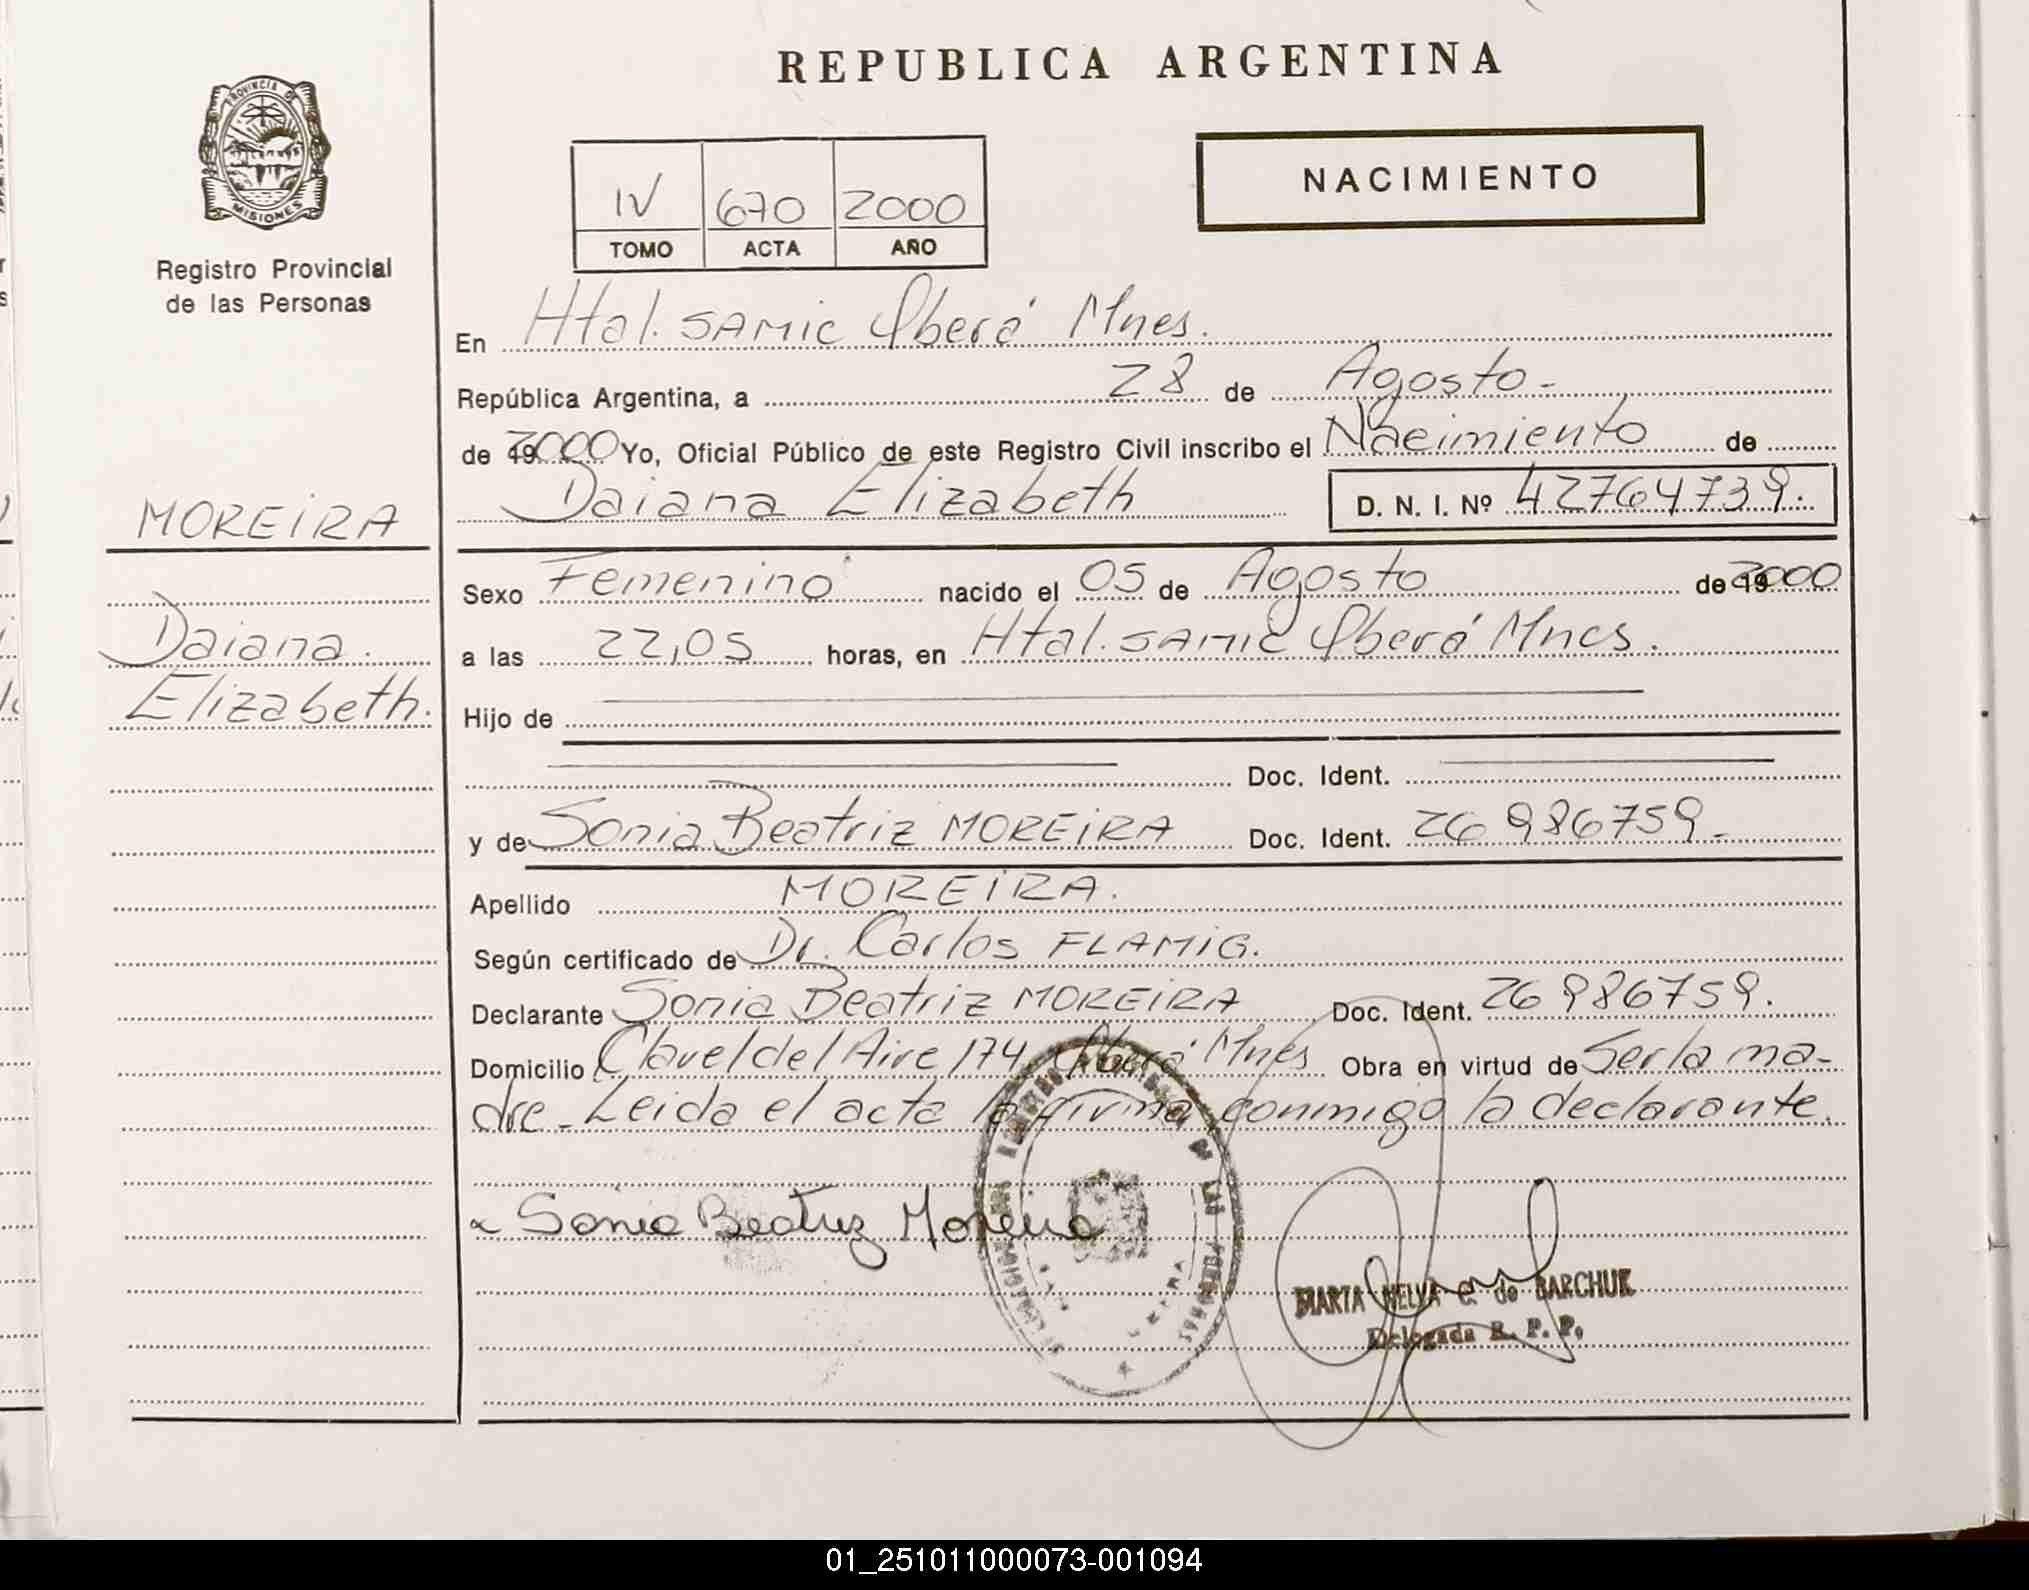 REPUBLICA ARGENTINA
PROVINCIA DE
MISIONES
Registro Provincial
de las Personas
IV 670 2000
TOMO ACTA AÑO
NACIMIENTO
En Htal. SAMIC Oberá Mnes.
República Argentina, a 28 de Agosto.-
de 2000 Yo, Oficial Público de este Registro Civil inscribo el Nacimiento de
Daiana Elizabeth D. N. I. Nº 42764739.
MOREIRA
Daiana
Elizabeth.
Sexo Femenino nacido el 05 de Agosto de 2000
a las 22,05 horas, en Htal. SAMIC Oberá Mnes.
Hijo de
Doc. Ident.
y de Sonia Beatriz MOREIRA Doc. Ident. 26986759.-
Apellido MOREIRA.
Según certificado de Dr. Carlos FLAMIG.
Declarante Sonia Beatriz MOREIRA Doc. Ident. 26986759.
Domicilio Clavel del Aire 174 Oberá Mnes Obra en virtud de Ser la ma-
dre.- Leida el acta la firma conmigo la declarante.
Sonia Beatriz Moreira
MARTA NELVA de BARCHUK
Delegada R. P. P.
01_251011000073-001094